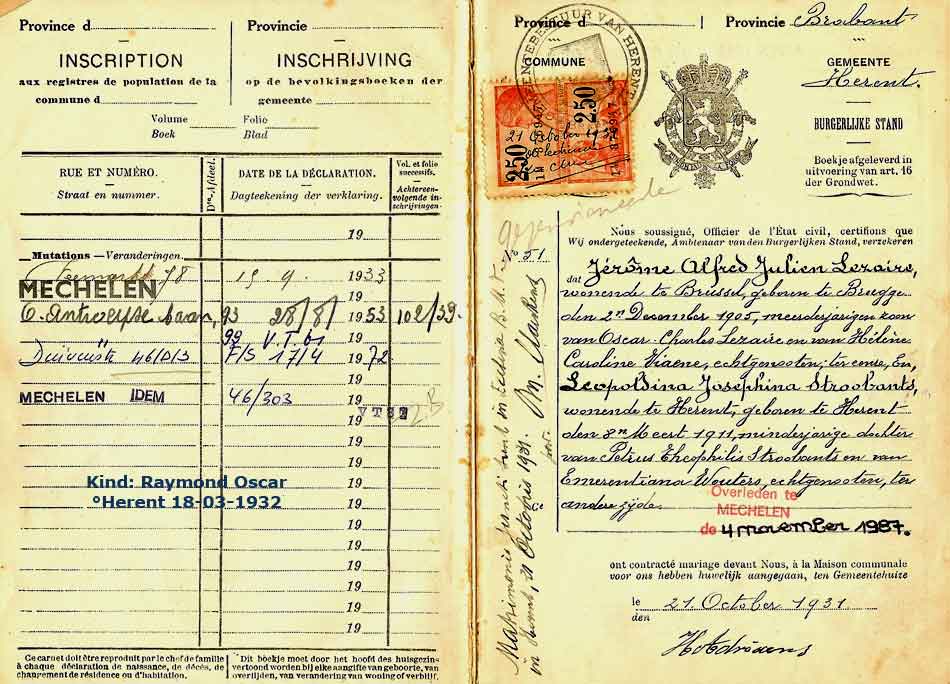 Province d
Provincie
INSCRIPTION
INSCHRIJVING
aux registres de population de la
op de bevolkingsboeken der
commune d
gemeente
Volume Folio
Boek Blad
RUE ET NUMÉRO.
Straat en nummer.
DATE DE LA DÉCLARATION.
Dagteekening der verklaring.
Vol. et folio
successifs.
Achtereen-
volgende in-
schrijvingen.
19
Mutations — Veranderingen.
Veemarkt 78 15 9. 1933
MECHELEN
19
O. Antwerpse baan, 93 28/8/ 1953 102/39
99 V.T.
19
46/0/3 F/S 17/4 1972
19
MECHELEN IDEM 46/303 19
19 VTSZ 2B
19
Kind: Raymond Oscar
°Herent 18-03-1932
19
19
19
19
19
19
19
19
Ce carnet doit être reproduit par le chef de famille
à chaque déclaration de naissance, de décès, de
changement de résidence ou d'habitation.
Dit boekje moet door het hoofd des huisgezins
vertoond worden bij elke aangifte van geboorte, van
overlijden, van verandering van woning of verblijf.
Province d
Provincie Brabant
COMMUNE
GEMEENTE
Herent.
GEMEENTEBESTUUR VAN HERENT
2.50
2.50
21 October 193
BURGERLIJKE STAND
Boekje afgeleverd in
uitvoering van art. 16
der Grondwet.
Nous soussigné, Officier de l'État civil, certifions que
Nº 51 Wij ondergeteekende, Ambtenaar van den Burgerlijken Stand, verzekeren
dat Jérôme Alfred Julien Lezaire,
wonende te Brussel, geboren te Brugge
den 2n December 1905, meerderjarigen zoon
van Oscar Charles Lezaire en van Hélène
Caroline Viaene, echtgenooten, ter eene, En
Leopoldina Josephina Stroobants,
wonende te Herent, geboren te Herent
den 8n Meert 1911, minderjarige dochter
van Petrus Theophilis Stroobants en van
Emerentiana Wouters, echtgenooten, ter
Ce andere zijde.
Overleden te
MECHELEN
de 4 november 1987.
ont contracté mariage devant Nous, à la Maison communale
voor ons hebben huwelijk aangegaan, ten Gemeentehuize
le
den 21. October 1931
Matrimonio juncti sunt in Ecclesia
in Herent, 21 Octobris 1931.